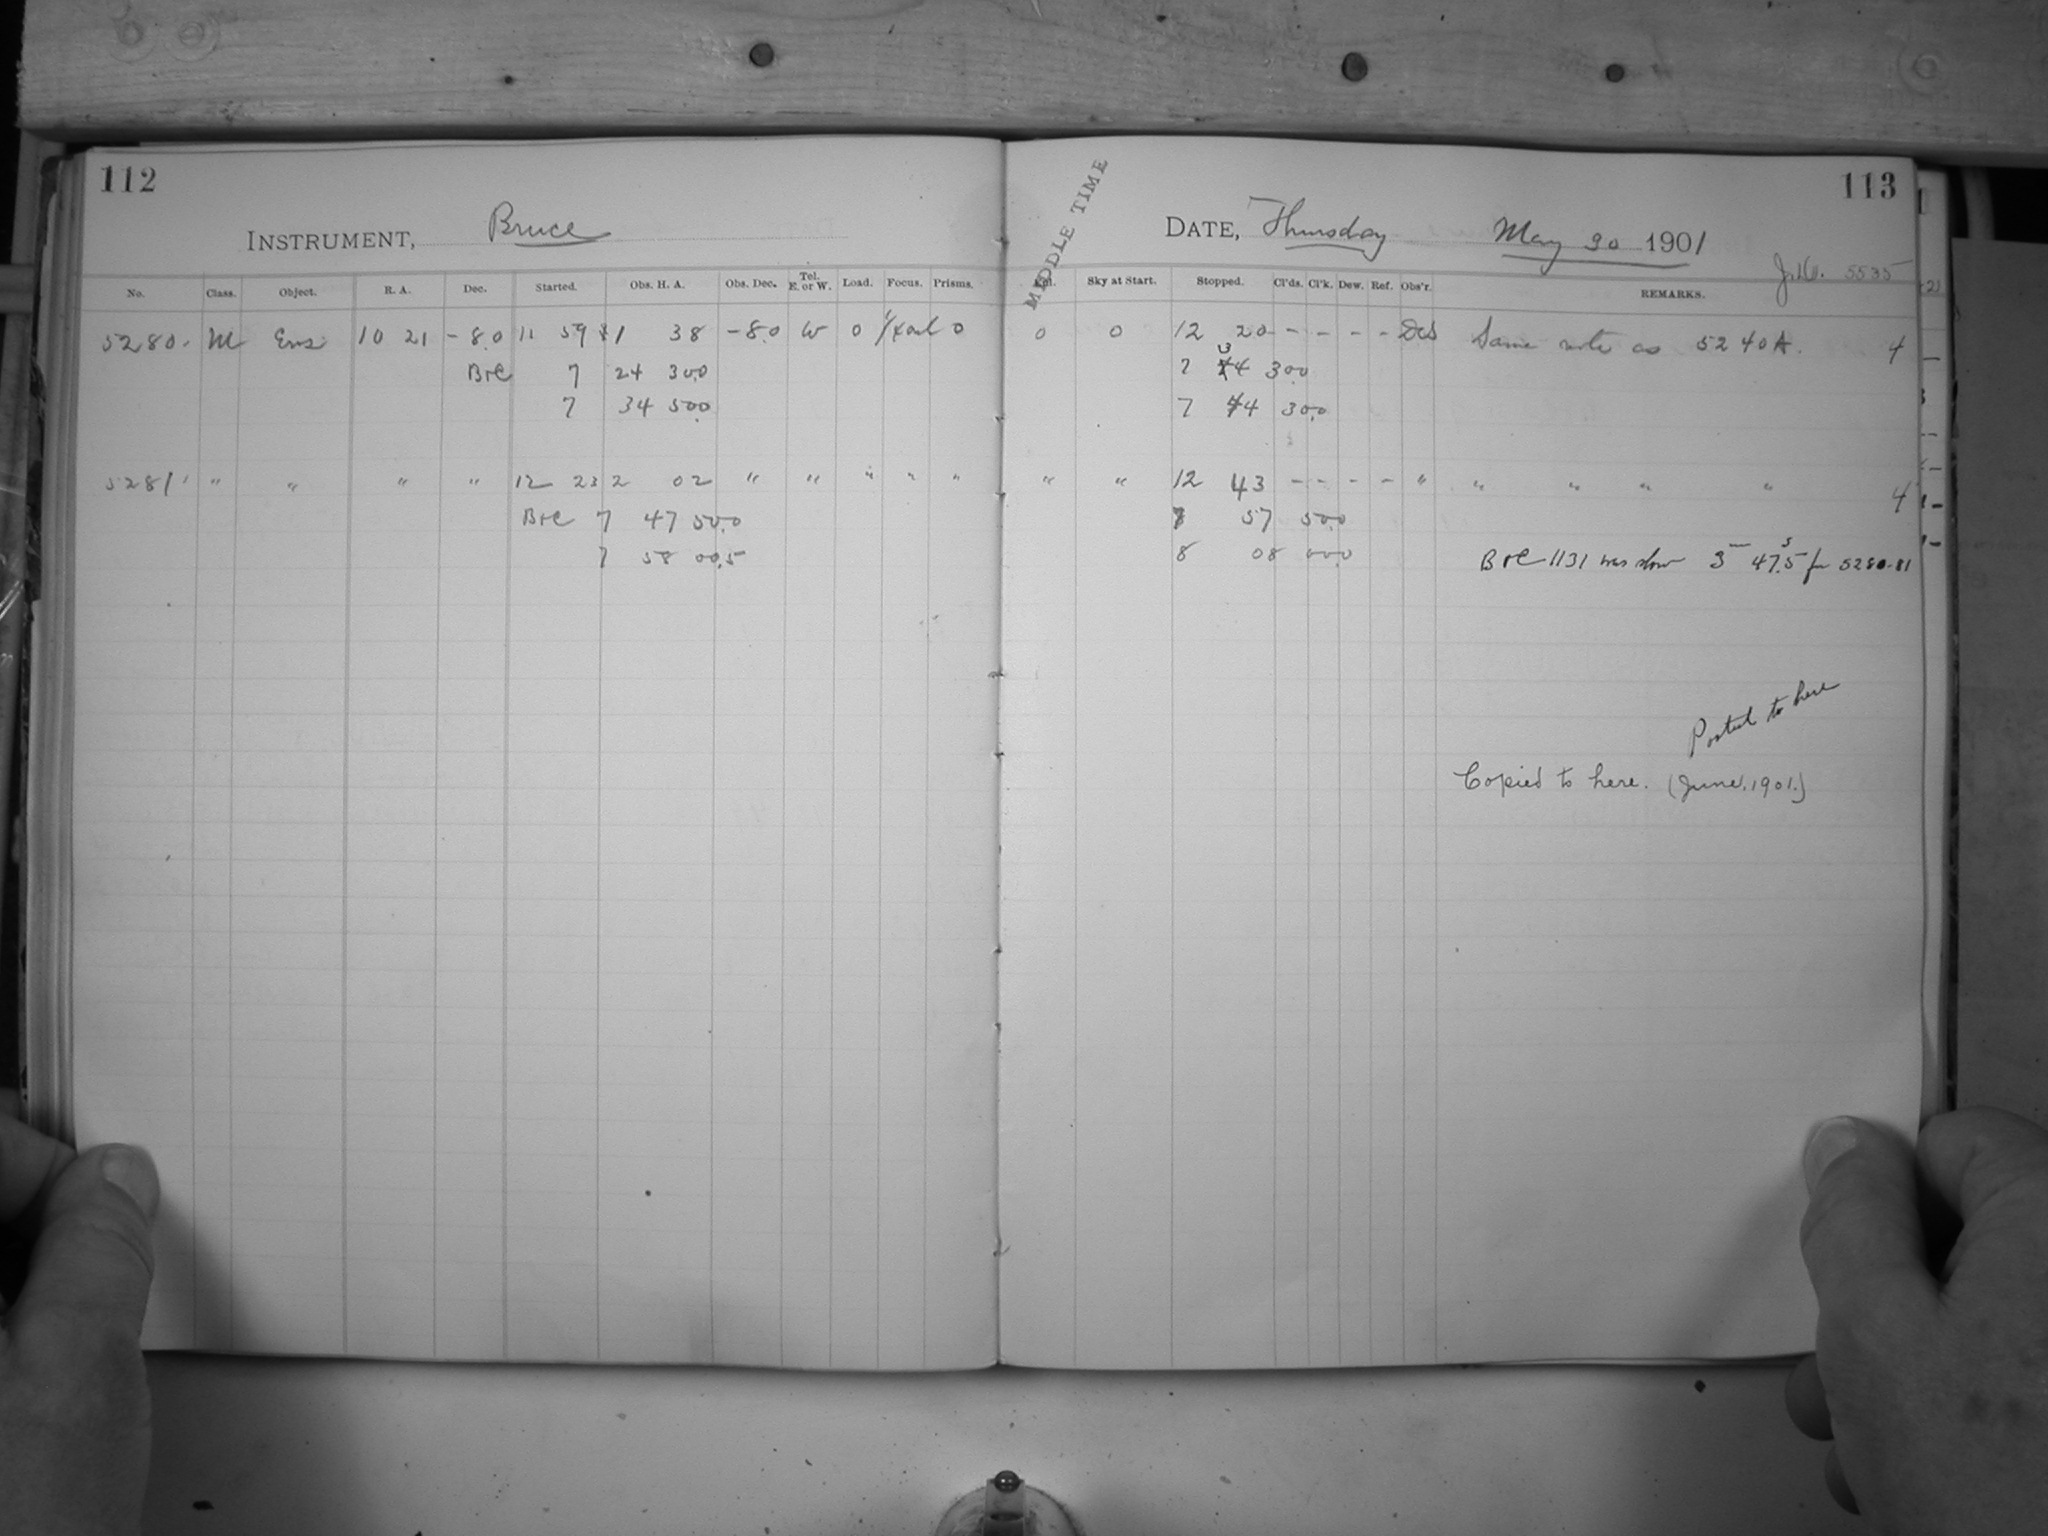 112
INSTRUMENT, Bruce
No. Class. Object. R. A. Dec. Started. Obs. H. A. Obs. Dec. Tel. E. or W. Load. Focus. Prisms.
5280. M Eros 10 21 - 8.0 11 59 1 38 - 8.0 W 0 0
B+C 7 24 30.0
7 34 50.0
5281 " " " " 12 23 2 02 " " " " "
B+C 7 47 50.0
7 58 00.5
MIDDLE TIME
113
DATE, Thursday May 30 1901
J.D. 5535
Sky at Start. Stopped. Cl'ds. Cl'k. Dew. Ref. Obs'r. REMARKS.
0 0 12 20 - - - - Same note as 5240A. 4
7 34 30.0
7 44 30.0
" " 12 43 - - - - " " " " " 4
57 50.0
8 08 00.0 B+C 1131 was slow 3m 47.5s for 5280-81
Posted to here
Copied to here. (June, 1901.)